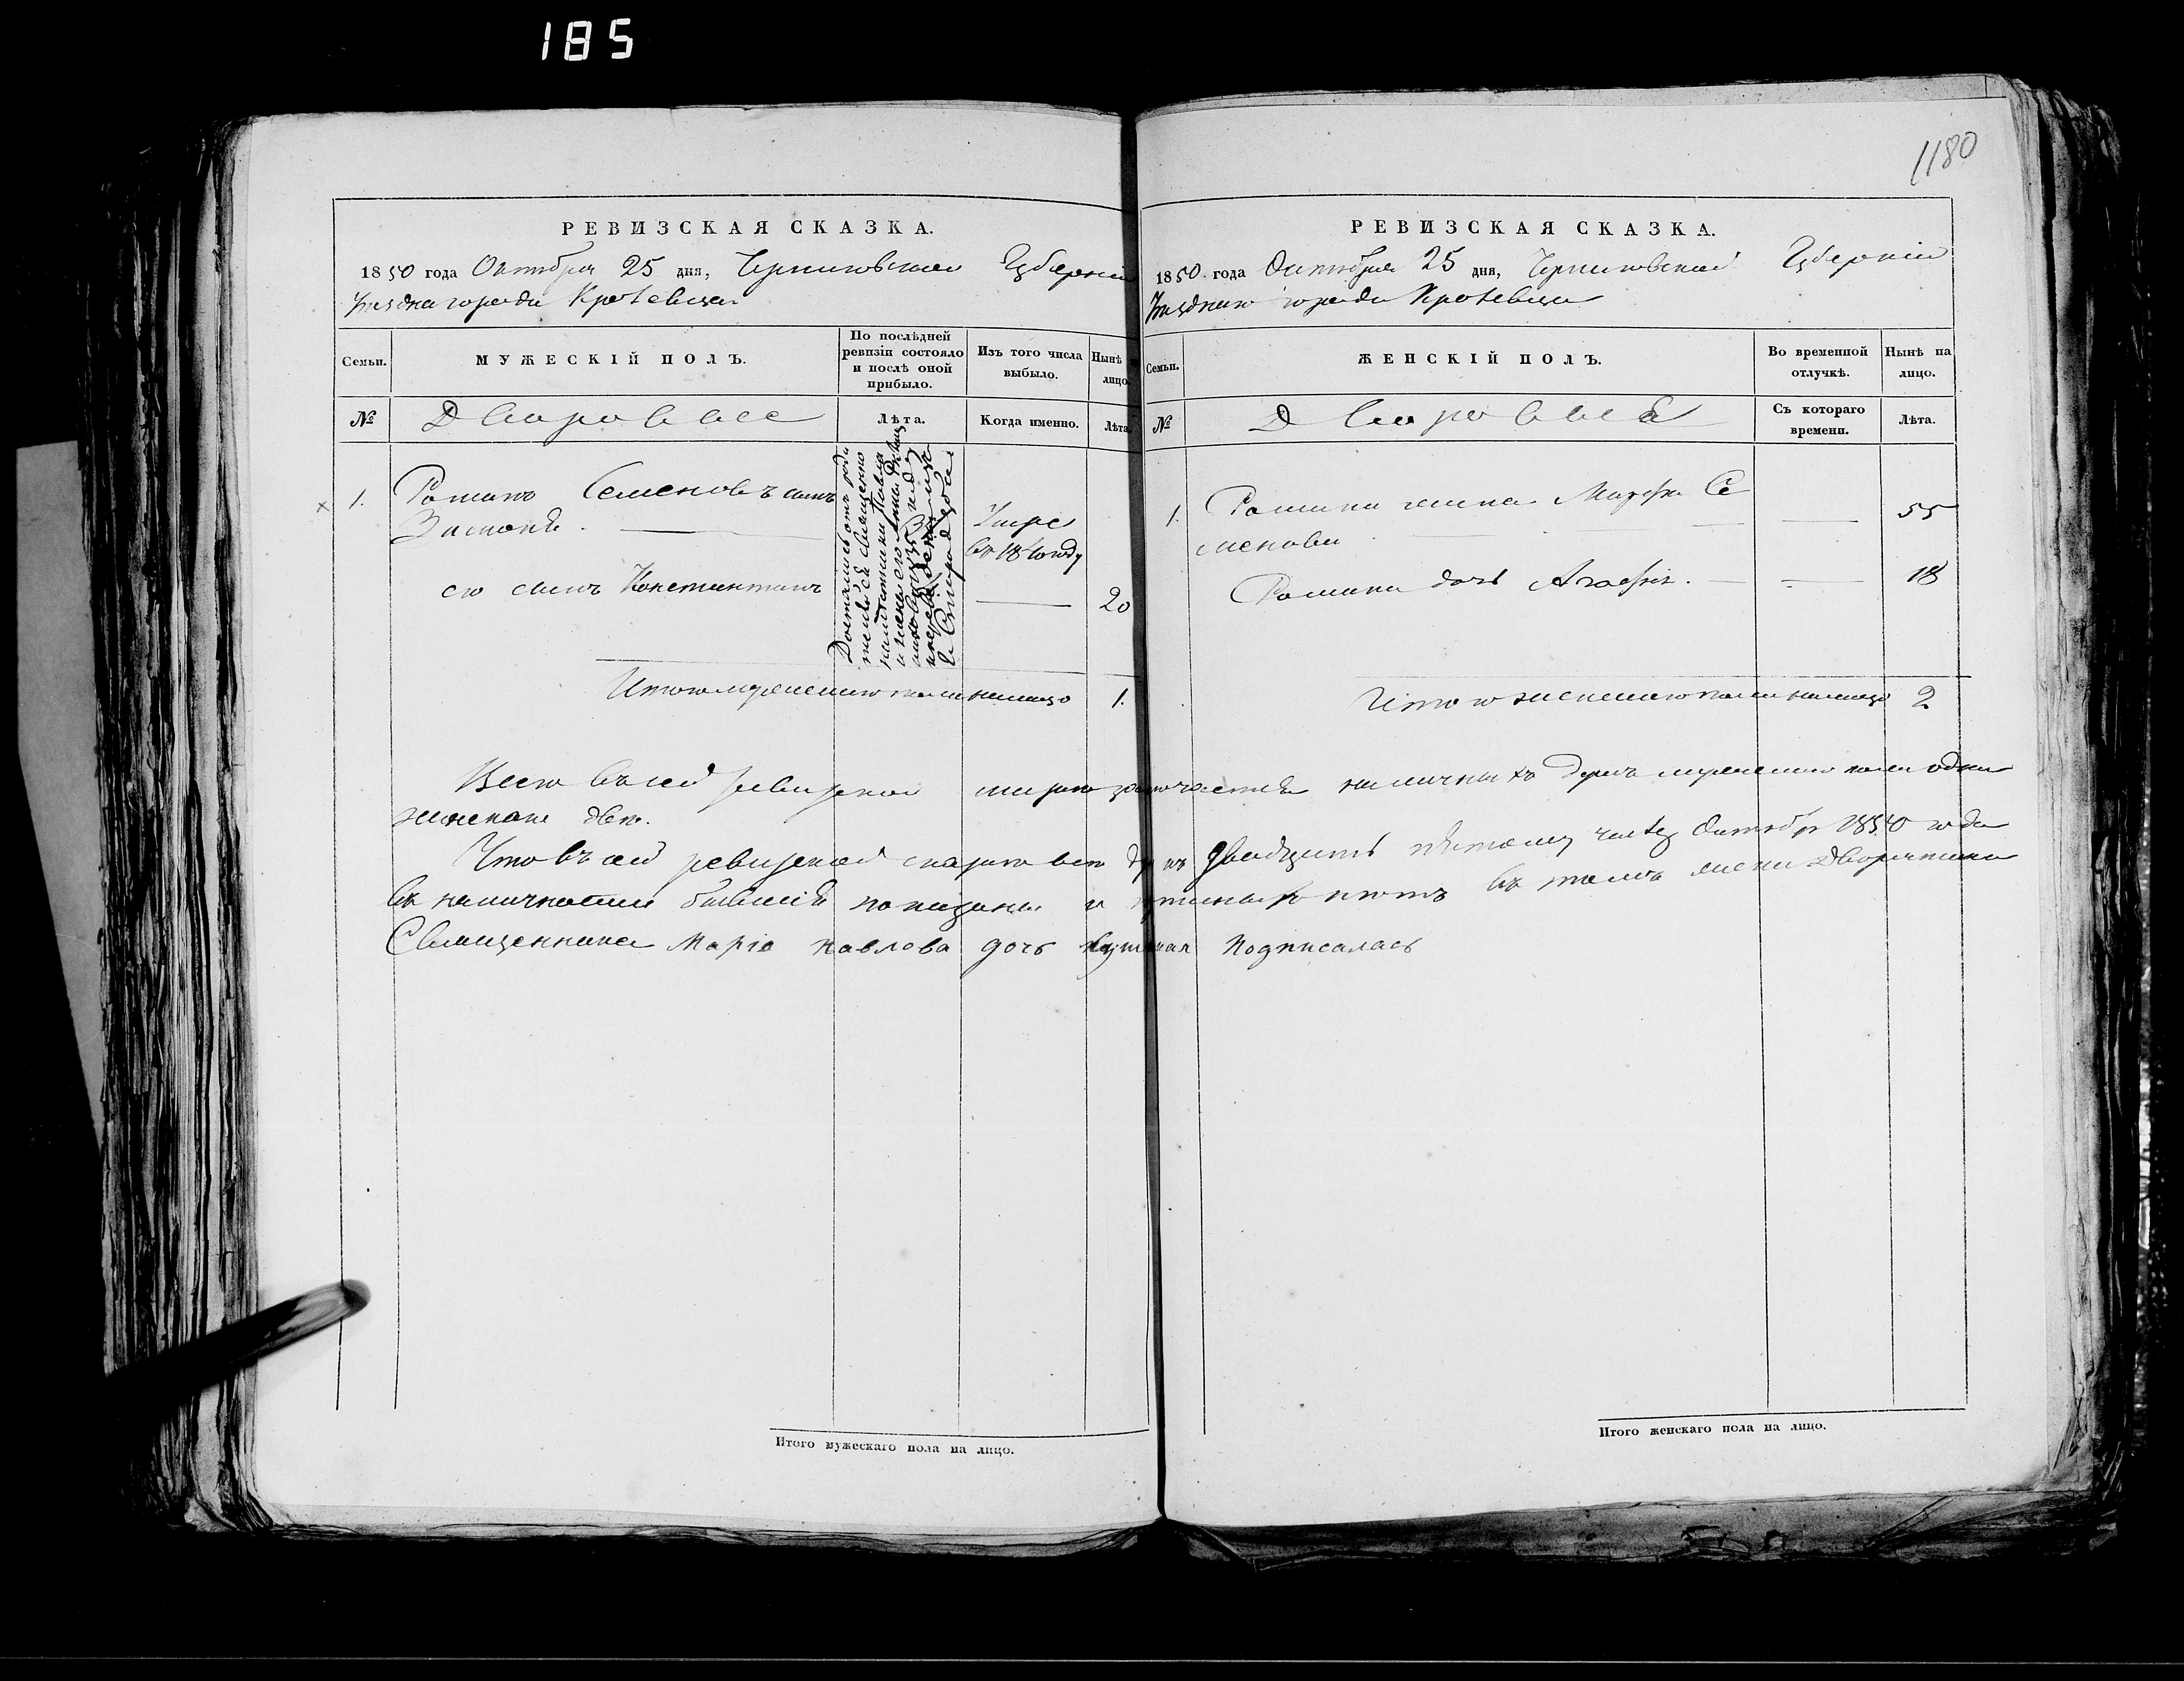 185
1180
РЕВИЗСКАЯ СКАЗКА.
1850 года Октября 25 дня, Черниговской Губерніи
Уезднаго города Кролевца
Семьи.
МУЖЕСКІЙ ПОЛЪ.
По послѣдней ревизіи состояло и послѣ оной прибыло.
Изъ того числа выбыло.
Нынѣ лицо.
№
Дворовые
Лѣта.
Когда именно.
Лѣта.
1. Романъ Семеновъ сынъ
Достались отъ роди
телей Священно
Павла
и жены его Анны
Умре
въ 18 году
его сынъ Константинъ
20
Итого мужеского пола налицо 1.
РЕВИЗСКАЯ СКАЗКА.
1850 года Октября 25 дня, Черниговской Губерніи
Уезднаго города Кролевца
Семьи.
ЖЕНСКІЙ ПОЛЪ.
Во временной отлучкѣ.
Нынѣ на лицо.
№
Дворовые
Съ котораго времени.
Лѣта.
1. Романа жена Марфа Се
менова
55
Романа дочь Агафія. 18
Итого женского пола налицо 2
Всего въ сей ревизской наличныхъ душъ мужеского пола одна
женскаго двѣ.
Что въ сей ревизской сказке все двадцать пятому числу Октября 1850 года
въ наличности бывшіе показаны и въ томъ Дворянина
Священника Марія Павлова дочь Подписалась
Итого мужескаго пола на лицо.
Итого женскаго пола на лицо.